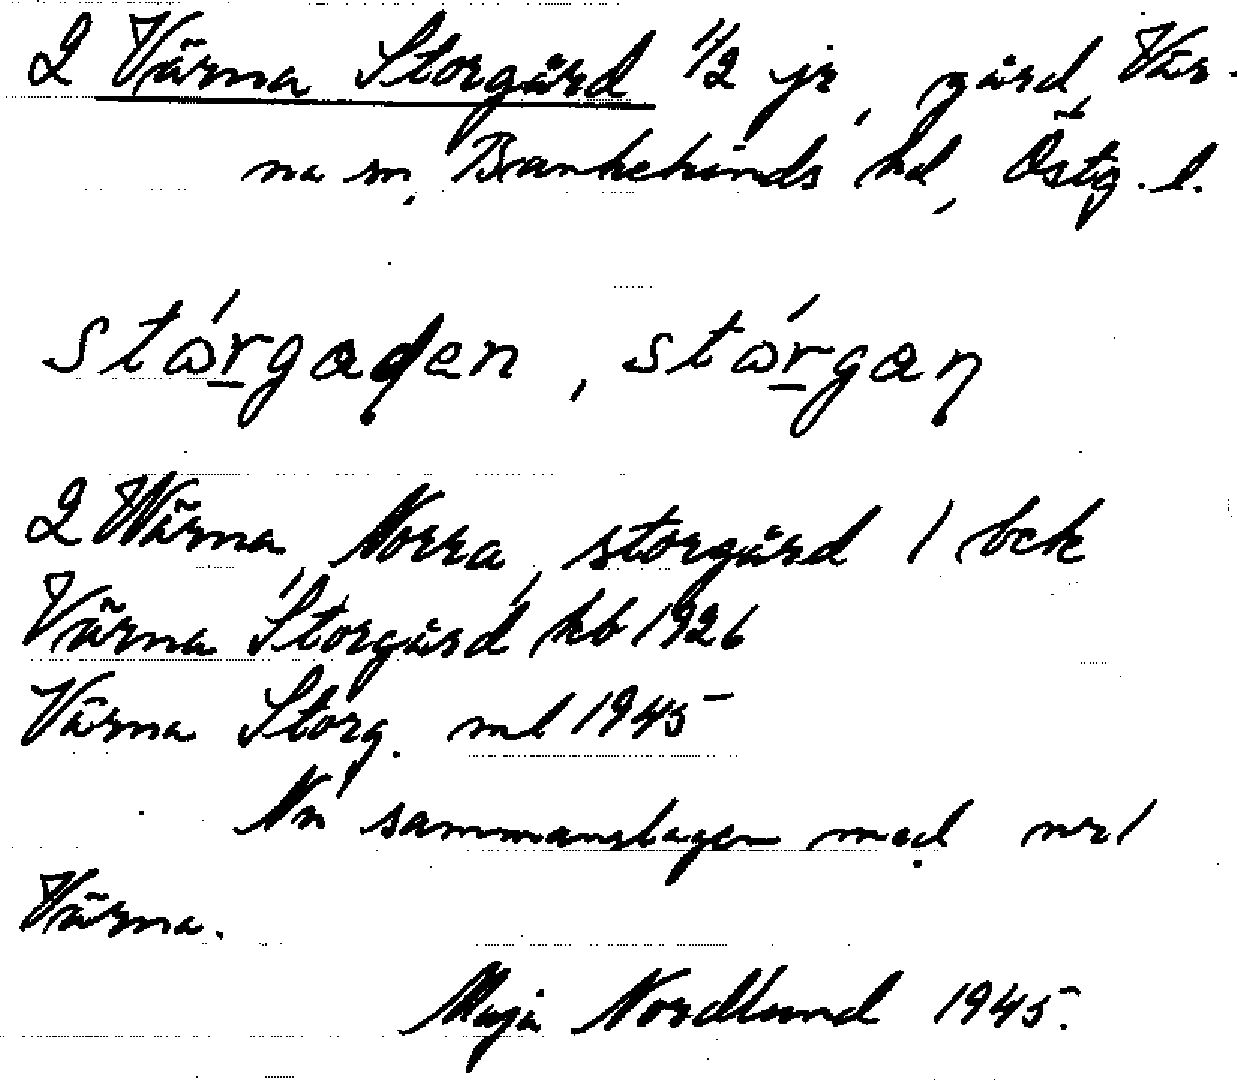 2 Värna Storgård 1/2 jr, gård, Vär-
na sn, Bankekinds hd, Östg. l.
stórgaden, stórgan
2 Wärna, Norra, storgård / bck
Värna Storgård kb 1926
Värna Storg. ml 1945
Nu sammanslagen med nr 1
Värna.
Maja Nordlund 1945.